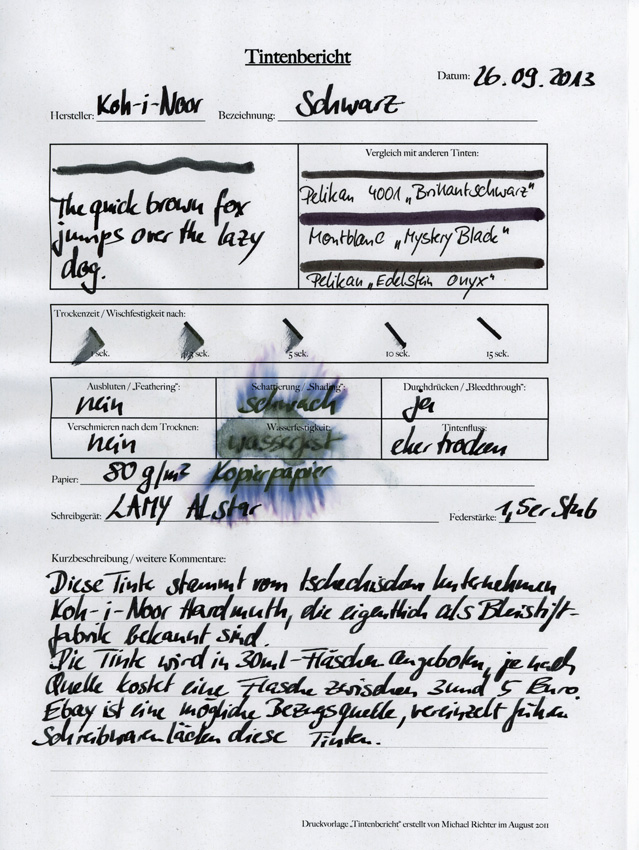 Tintenbericht
Datum: 26.09.2013
Hersteller: Koh-i-Noor Bezeichnung: Schwarz
Vergleich mit anderen Tinten:
The quick brown fox
jumps over the lazy
dog.
Pelikan 4001 „Brillantschwarz"
Montblanc „Mystery Black"
Pelikan „Edelstein Onyx"
Trockenzeit / Wischfestigkeit nach:
1 sek. sek. 5 sek. 10 sek. 15 sek.
Ausbluten / „Feathering": Schattierung / „Shading": Durchdrücken / „Bleedthrough":
nein schwach ja
Verschmieren nach dem Trocknen: Wasserfestigkeit: Tintenfluss:
nein wasserfest eher trocken
Papier: 80 g/m² Kopierpapier
Schreibgerät: LAMY ALstar Federstärke: 1,5er Stub
Kurzbeschreibung / weitere Kommentare:
Diese Tinte stammt vom tschechischen Unternehmen
Koh-i-Noor Hardmuth, die eigentlich als Bleistift-
fabrik bekannt sind.
Die Tinte wird in 30ml-Fläschen angeboten, je nach
Quelle kostet eine Flasche zwischen 3 und 5 Euro.
Ebay ist eine mögliche Bezugsquelle, vereinzelt führen
Schreibwarenläden diese Tinten.
Druckvorlage „Tintenbericht" erstellt von Michael Richter im August 2011